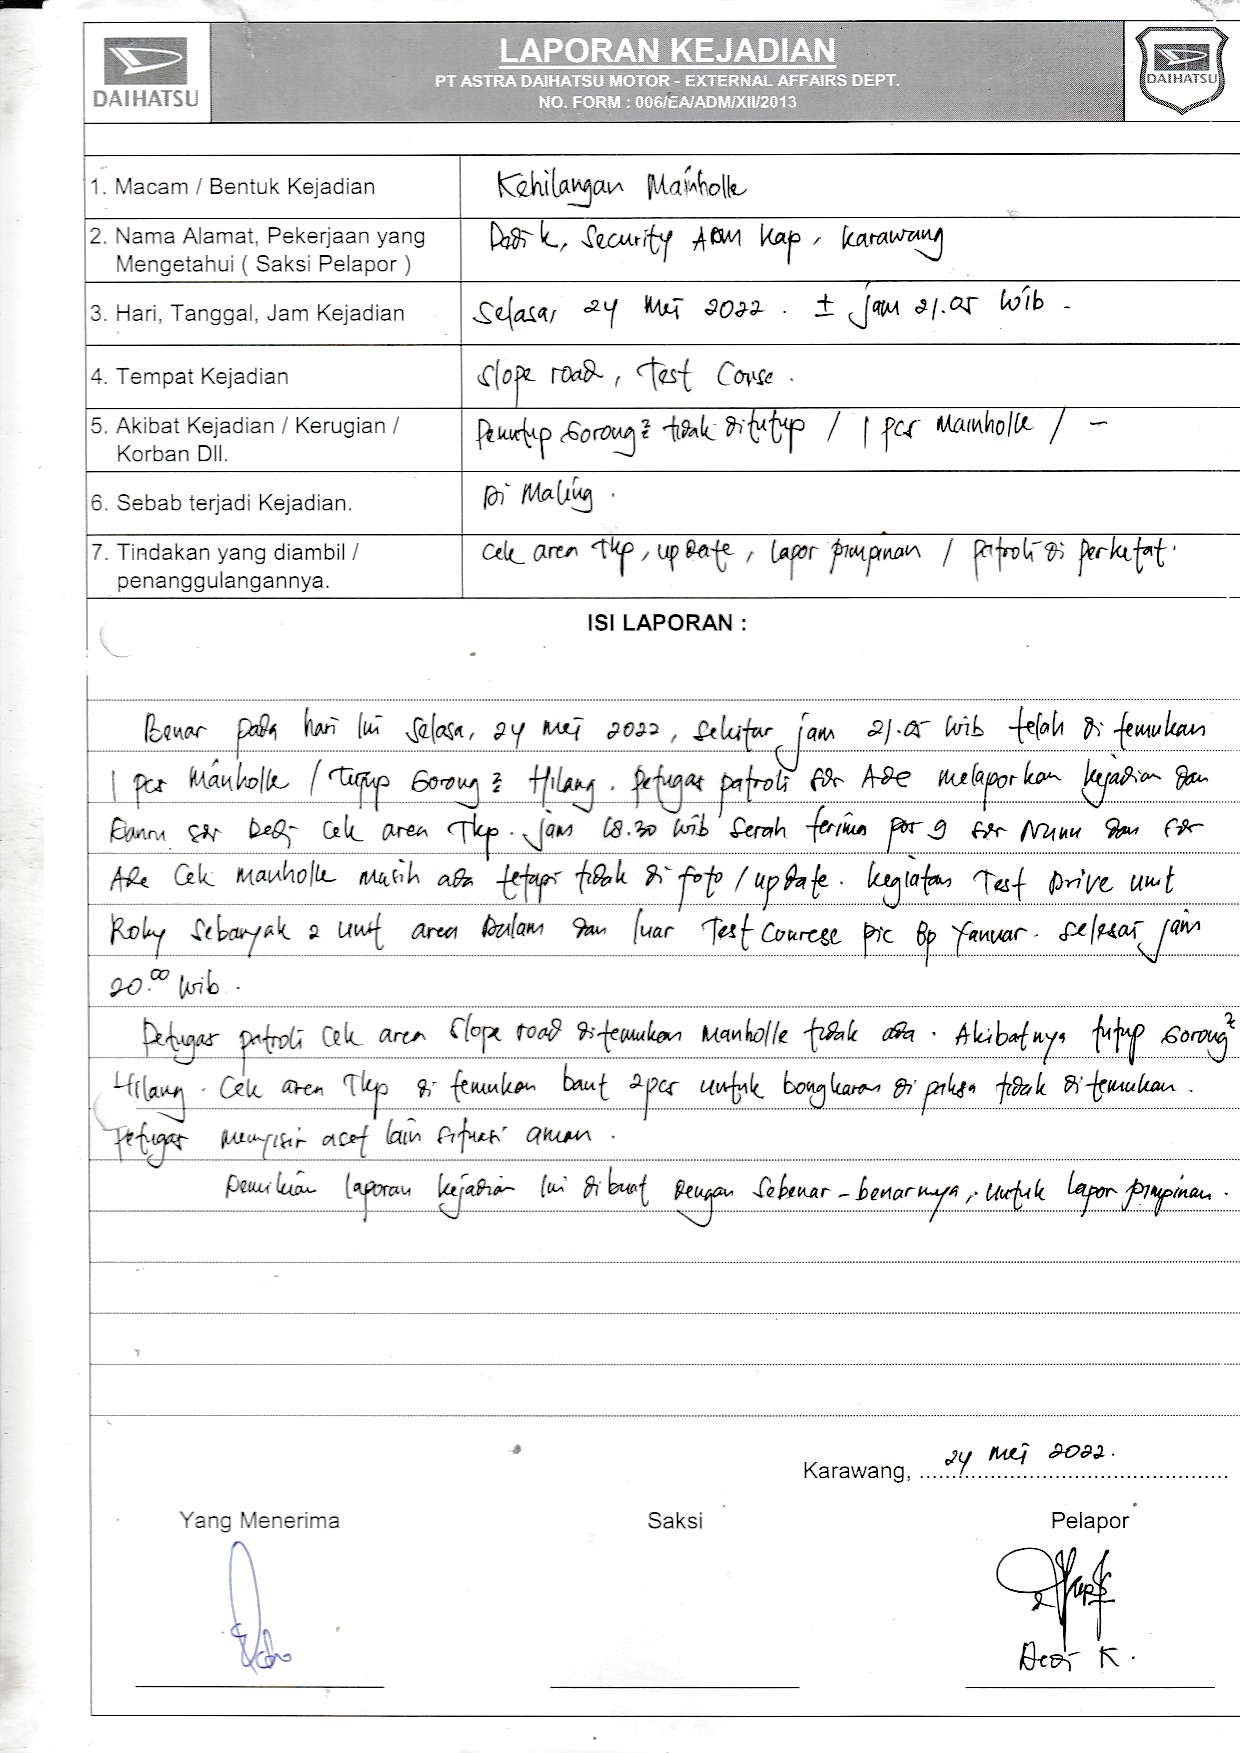 DAIHATSU
LAPORAN KEJADIAN
PT ASTRA DAIHATSU MOTOR - EXTERNAL AFFAIRS DEPT.
NO. FORM : 006/EA/ADM/XII/2013
DAIHATSU
1. Macam / Bentuk Kejadian
Kehilangan Mainholle
2. Nama Alamat, Pekerjaan yang
Mengetahui ( Saksi Pelapor )
Dedi K, Security ADM Kap, Karawang
3. Hari, Tanggal, Jam Kejadian
Selasa, 24 Mei 2022. ± jam 21.05 Wib -
4. Tempat Kejadian
Slope road, Test Couse.
5. Akibat Kejadian / Kerugian /
Korban Dll.
Penutup Gorong² tidak ditutup / 1 pcs Mainholle / -
6. Sebab terjadi Kejadian.
Di Maling.
7. Tindakan yang diambil /
penanggulangannya.
Cek area Tkp, update, lapor pimpinan / patroli di perketat.
ISI LAPORAN :
Benar pada hari Ini Selasa, 24 Mei 2022, Sekitar jam 21.05 Wib telah di temukan
1 pcs Manholle / Tutup Gorong² Hilang. Petugas patroli Sdr Ade melaporkan kejadian dan
Danru Sdr Dedi Cek area Tkp. Jam 18.30 Wib Serah terima pos 9 Sdr Nunu dan Sdr
Ade Cek manholle masih ada tetapi tidak di foto / update. Kegiatan Test Drive unit
Roky Sebanyak 2 Unit area Dalam dan luar Test Courese pic Bp Yanuar. Selesai jam
20.00 Wib.
Petugas patroli Cek area Slope road ditemukan Manholle tidak ada. Akibatnya tutup Gorong²
Hilang. Cek area Tkp di temukan baut 2pcs untuk bongkaran di paksa tidak di temukan.
Petugas menyisir acet lain Situasi aman.
Demikian laporan kejadian Ini dibuat Dengan Sebenar-benarnya, untuk lapor pimpinan.
Karawang, 24 Mei 2022.
Yang Menerima
Saksi
Pelapor
Dedi K.